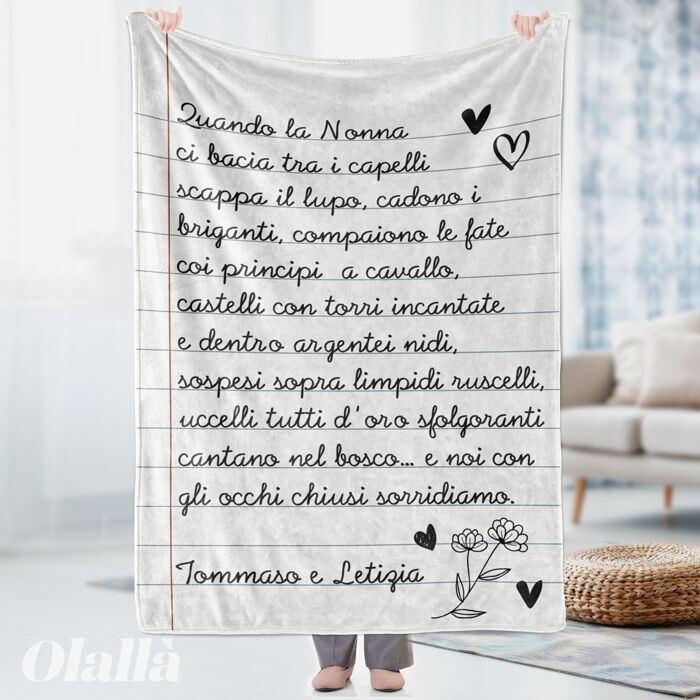 Quando la Nonna
ci bacia tra i capelli
scappa il lupo, cadono i
briganti, compaiono le fate
coi principi a cavallo,
castelli con torri incantate
e dentro argentei nidi,
sospesi sopra limpidi ruscelli,
uccelli tutti d'oro sfolgoranti
cantano nel bosco... e noi con
gli occhi chiusi sorridiamo.
Tommaso e Letizia
Olallà